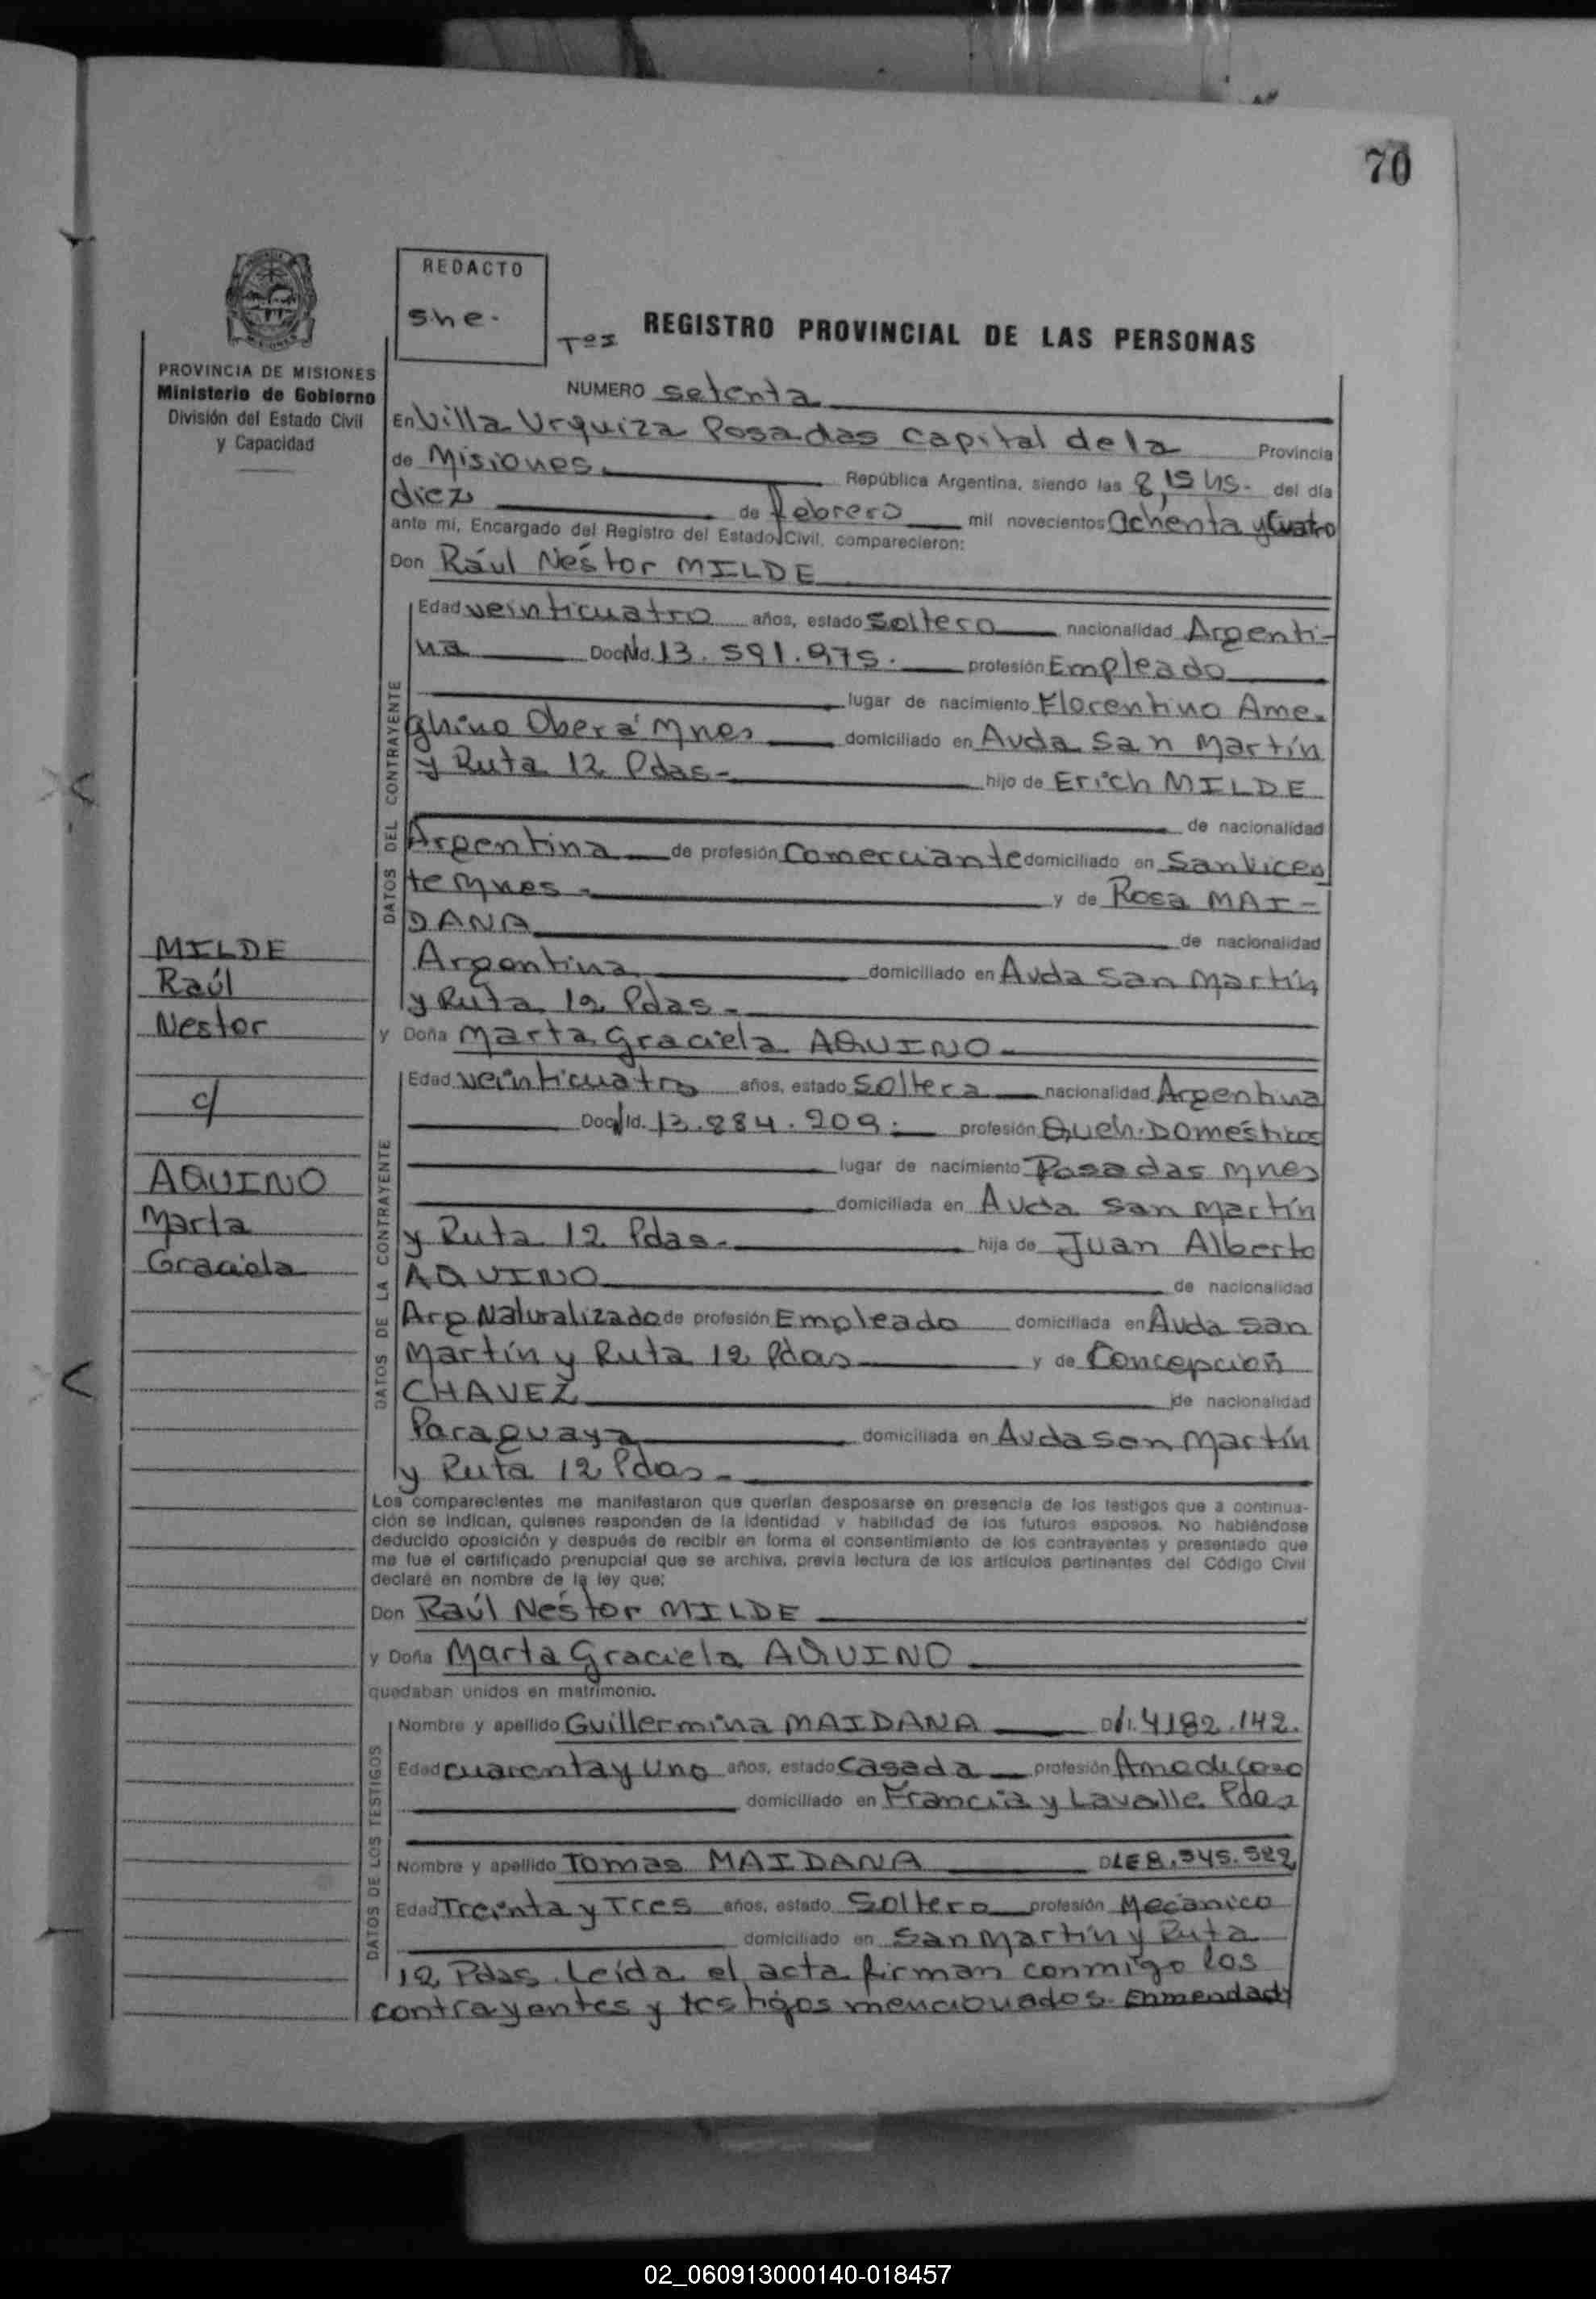 70
REDACTO
She.
Tº I
REGISTRO PROVINCIAL DE LAS PERSONAS
PROVINCIA DE MISIONES
Ministerio de Gobierno
División del Estado Civil
y Capacidad
NUMERO setenta
En Villa Urquiza Posadas Capital de la Provincia
de Misiones. República Argentina, siendo las 8,15 hs. del día
diez de febrero mil novecientos Ochenta y Cuatro
ante mí, Encargado del Registro del Estado Civil, comparecieron:
Don Raúl Néstor MILDE
DATOS DEL CONTRAYENTE
Edad veinticuatro años, estado Soltero nacionalidad Argenti-
na Doc. Nd. 13.591.975. profesión Empleado
lugar de nacimiento Florentino Ame-
ghino Oberá Mnes domiciliado en Avda San Martín
y Ruta 12 Pdas- hijo de Erich MILDE
de nacionalidad
Argentina de profesión Comerciante domiciliado en San Vicen
te Mnes - y de Rosa MAI-
DANA de nacionalidad
Argentina domiciliado en Avda San Martín
y Ruta 12 Pdas-
y Doña Marta Graciela AQUINO
DATOS DE LA CONTRAYENTE
Edad veinticuatro años, estado Soltera nacionalidad Argentina
Doc. Id. 13.884.209. profesión Queh. Domésticos
lugar de nacimiento Posadas Mnes
domiciliada en Avda San Martín
y Ruta 12 Pdas- hija de Juan Alberto
AQUINO de nacionalidad
Arg Naturalizado de profesión Empleado domiciliada en Avda San
Martín y Ruta 12 Pdas y de Concepción
CHAVEZ de nacionalidad
Paraguaya domiciliada en Avda San Martín
y Ruta 12 Pdas-
MILDE
Raúl
Nestor
c/
AQUINO
Marta
Graciela
Los comparecientes me manifestaron que querían desposarse en presencia de los testigos que a continua-
ción se indican, quienes responden de la identidad y habilidad de los futuros esposos. No habiéndose
deducido oposición y después de recibir en forma el consentimiento de los contrayentes y presentado que
me fue el certificado prenupcial que se archiva, previa lectura de los artículos pertinentes del Código Civil
declaré en nombre de la ley que:
Don Raúl Néstor MILDE
y Doña Marta Graciela AQUINO
quedaban unidos en matrimonio.
DATOS DE LOS TESTIGOS
Nombre y apellido Guillermina MAIDANA D.I. 4182.142.
Edad cuarenta y Uno años, estado Casada profesión Ama de Casa
domiciliado en Francia y Lavalle Pdas
Nombre y apellido Tomas MAIDANA DLE 8.545.522
Edad Treinta y Tres años, estado Soltero profesión Mecánico
domiciliado en San Martín y Ruta
12 Pdas. Leída el acta firman conmigo los
contrayentes y testigos mencionados. Enmendado
02_060913000140-018457